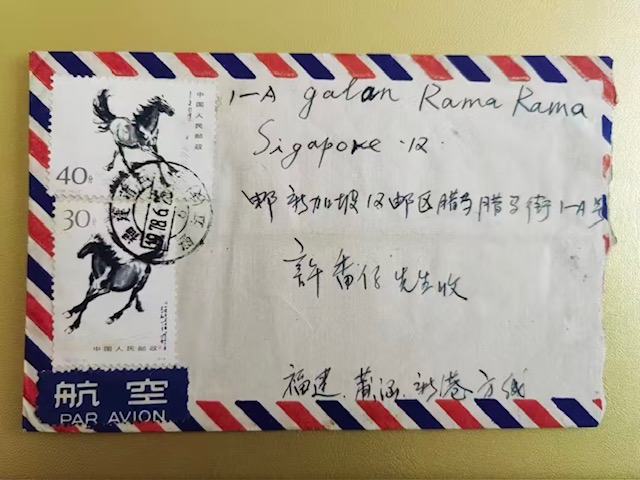 1-A galan Rama Rama
Sigapore .12
邮 新加坡12邮区腊马腊马街1-A号
許番仔 先生收
福建.莆涵.新港方缄
中国人民邮政
40分
30分
中国人民邮政
福建
1978.6.2
航空
PAR AVION